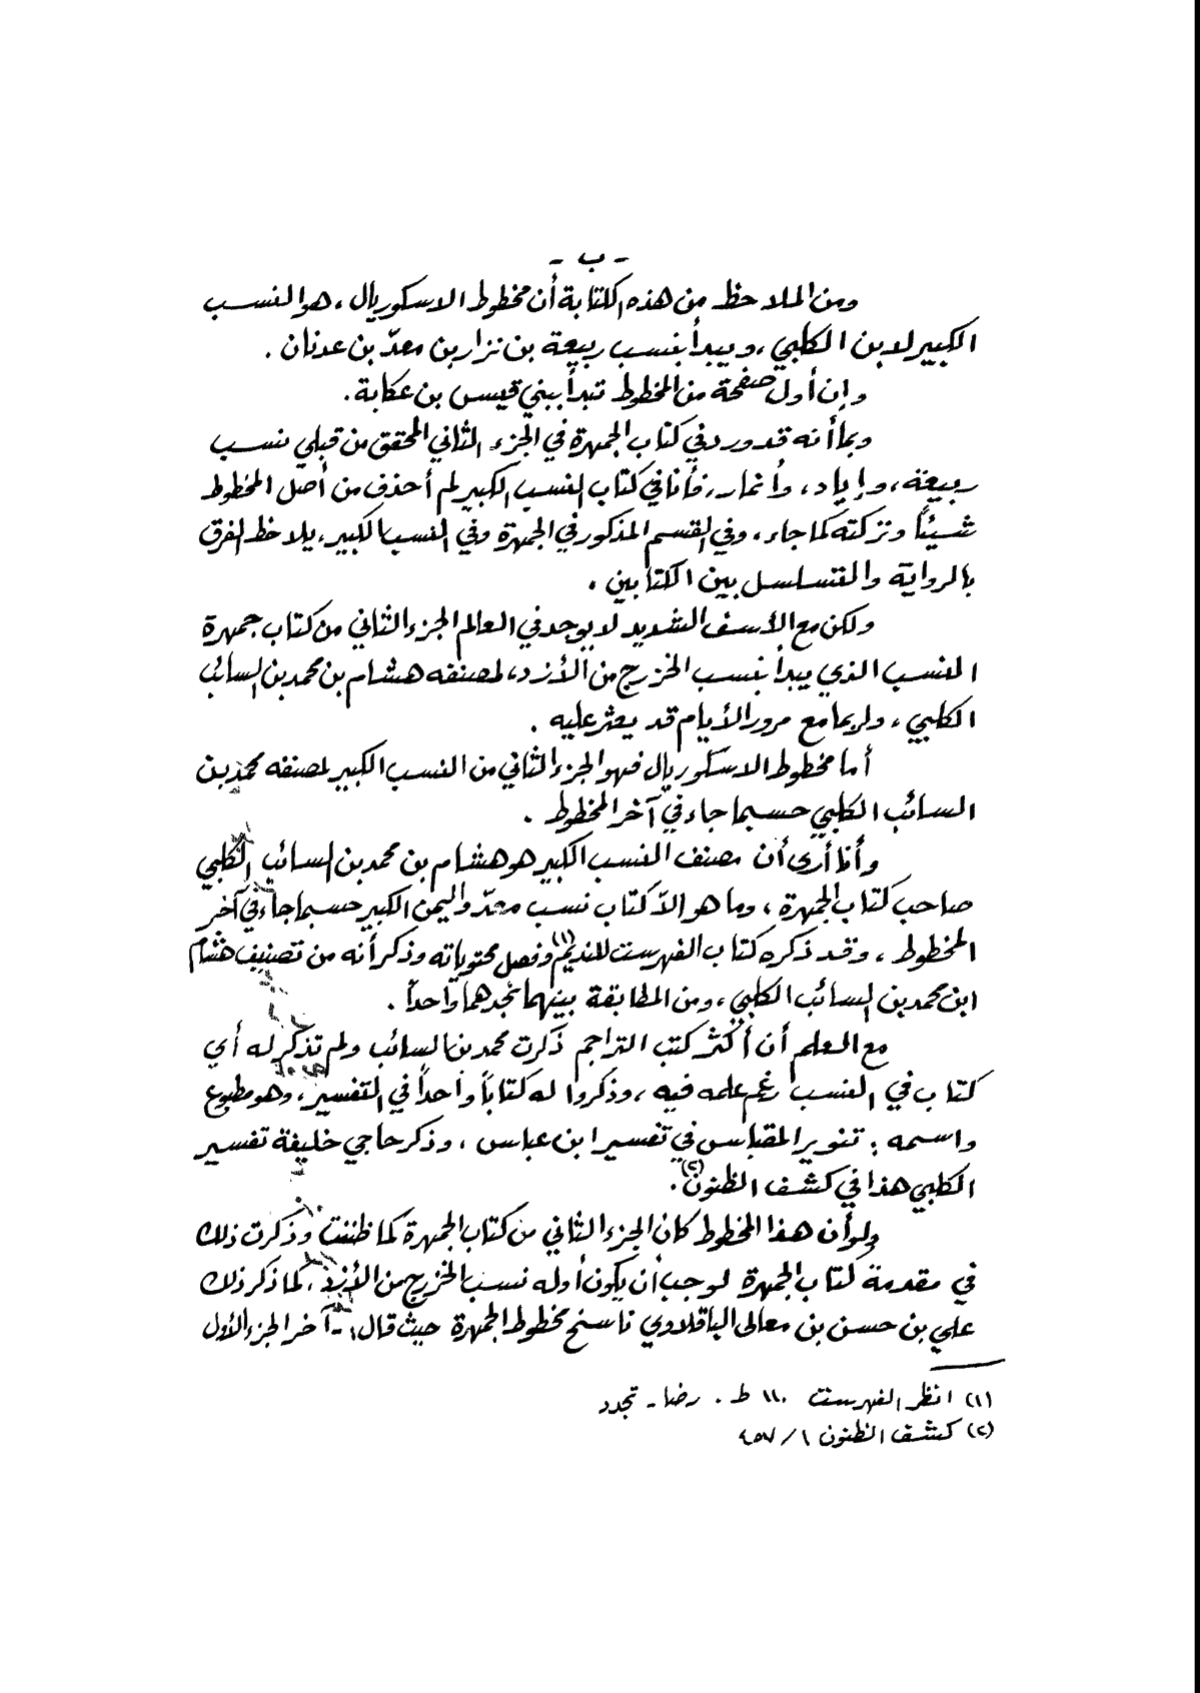 - ب -
ومن الملاحظ من هذه الكتابة أن مخطوط الاسكوريال ، هو النسب
الكبير لابن الكلبي ، ويبدأ بنسب ربيعة بن نزار بن معدّ بن عدنان .
وإن أول صفحة من المخطوط تبدأ ببني قيس بن عكابة .
وبما أنه قد ورد في كتاب الجمهرة في الجزء الثاني المحقق من قبلي نسب
ربيعة ، وإياد ، وأنمار ، فأنا في كتاب النسب الكبير لم أحذف من أصل المخطوط
شيئاً وتركته كما جاء ، وفي القسم المذكور في الجمهرة وفي النسب الكبير ، يلاحظ الفرق
بالرواية والتسلسل بين الكتابين .
ولكن مع الأسف الشديد لا يوجد في العالم الجزء الثاني من كتاب جمهرة
النسب الذي يبدأ بنسب الخزرج من الأزد ، لمصنفه هشام بن محمد بن السائب
الكلبي ، ولربما مع مرور الأيام قد يعثر عليه .
أما مخطوط الاسكوريال فهو الجزء الثاني من النسب الكبير لمصنفه محمد بن
السائب الكلبي حسبما جاء في آخر المخطوط .
وأنا أرى أن مصنف النسب الكبير هو هشام بن محمد بن السائب الكلبي
صاحب كتاب الجمهرة ، وما هو الاّ كتاب نسب معدّ واليمن الكبير حسبما جاء في آخر
المخطوط ، وقد ذكره كتاب الفهرست للنديم (١) وفصل محتوياته وذكر أنه من تصنيف هشام
ابن محمد بن السائب الكلبي ، ومن المطابقة بينهما نجدهما واحداً .
مع العلم أن أكثر كتب التراجم ذكرت محمد بن السائب ولم تذكر له أي
كتاب في النسب رغم علمه فيه ، وذكروا له كتاباً واحداً في التفسير ، وهو مطبوع
واسمه : تنوير المقباس في تفسير ابن عباس ، وذكر حاجي خليفة تفسير
الكلبي هذا في كشف الظنون (٢) .
ولو أن هذا المخطوط كان الجزء الثاني من كتاب الجمهرة كما ظننت وذكرت ذلك
في مقدمة كتاب الجمهرة لوجب أن يكون أوله نسب الخزرج من الأزد ، كما ذكر ذلك
علي بن حسن بن معالى الباقلاوي ناسخ مخطوط الجمهرة حيث قال :- آخر الجزء الأول
(١) انظر الفهرست ١١٠ ط . رضا - تجدد
(٢) كشف الظنون ١ / ٤٥٧